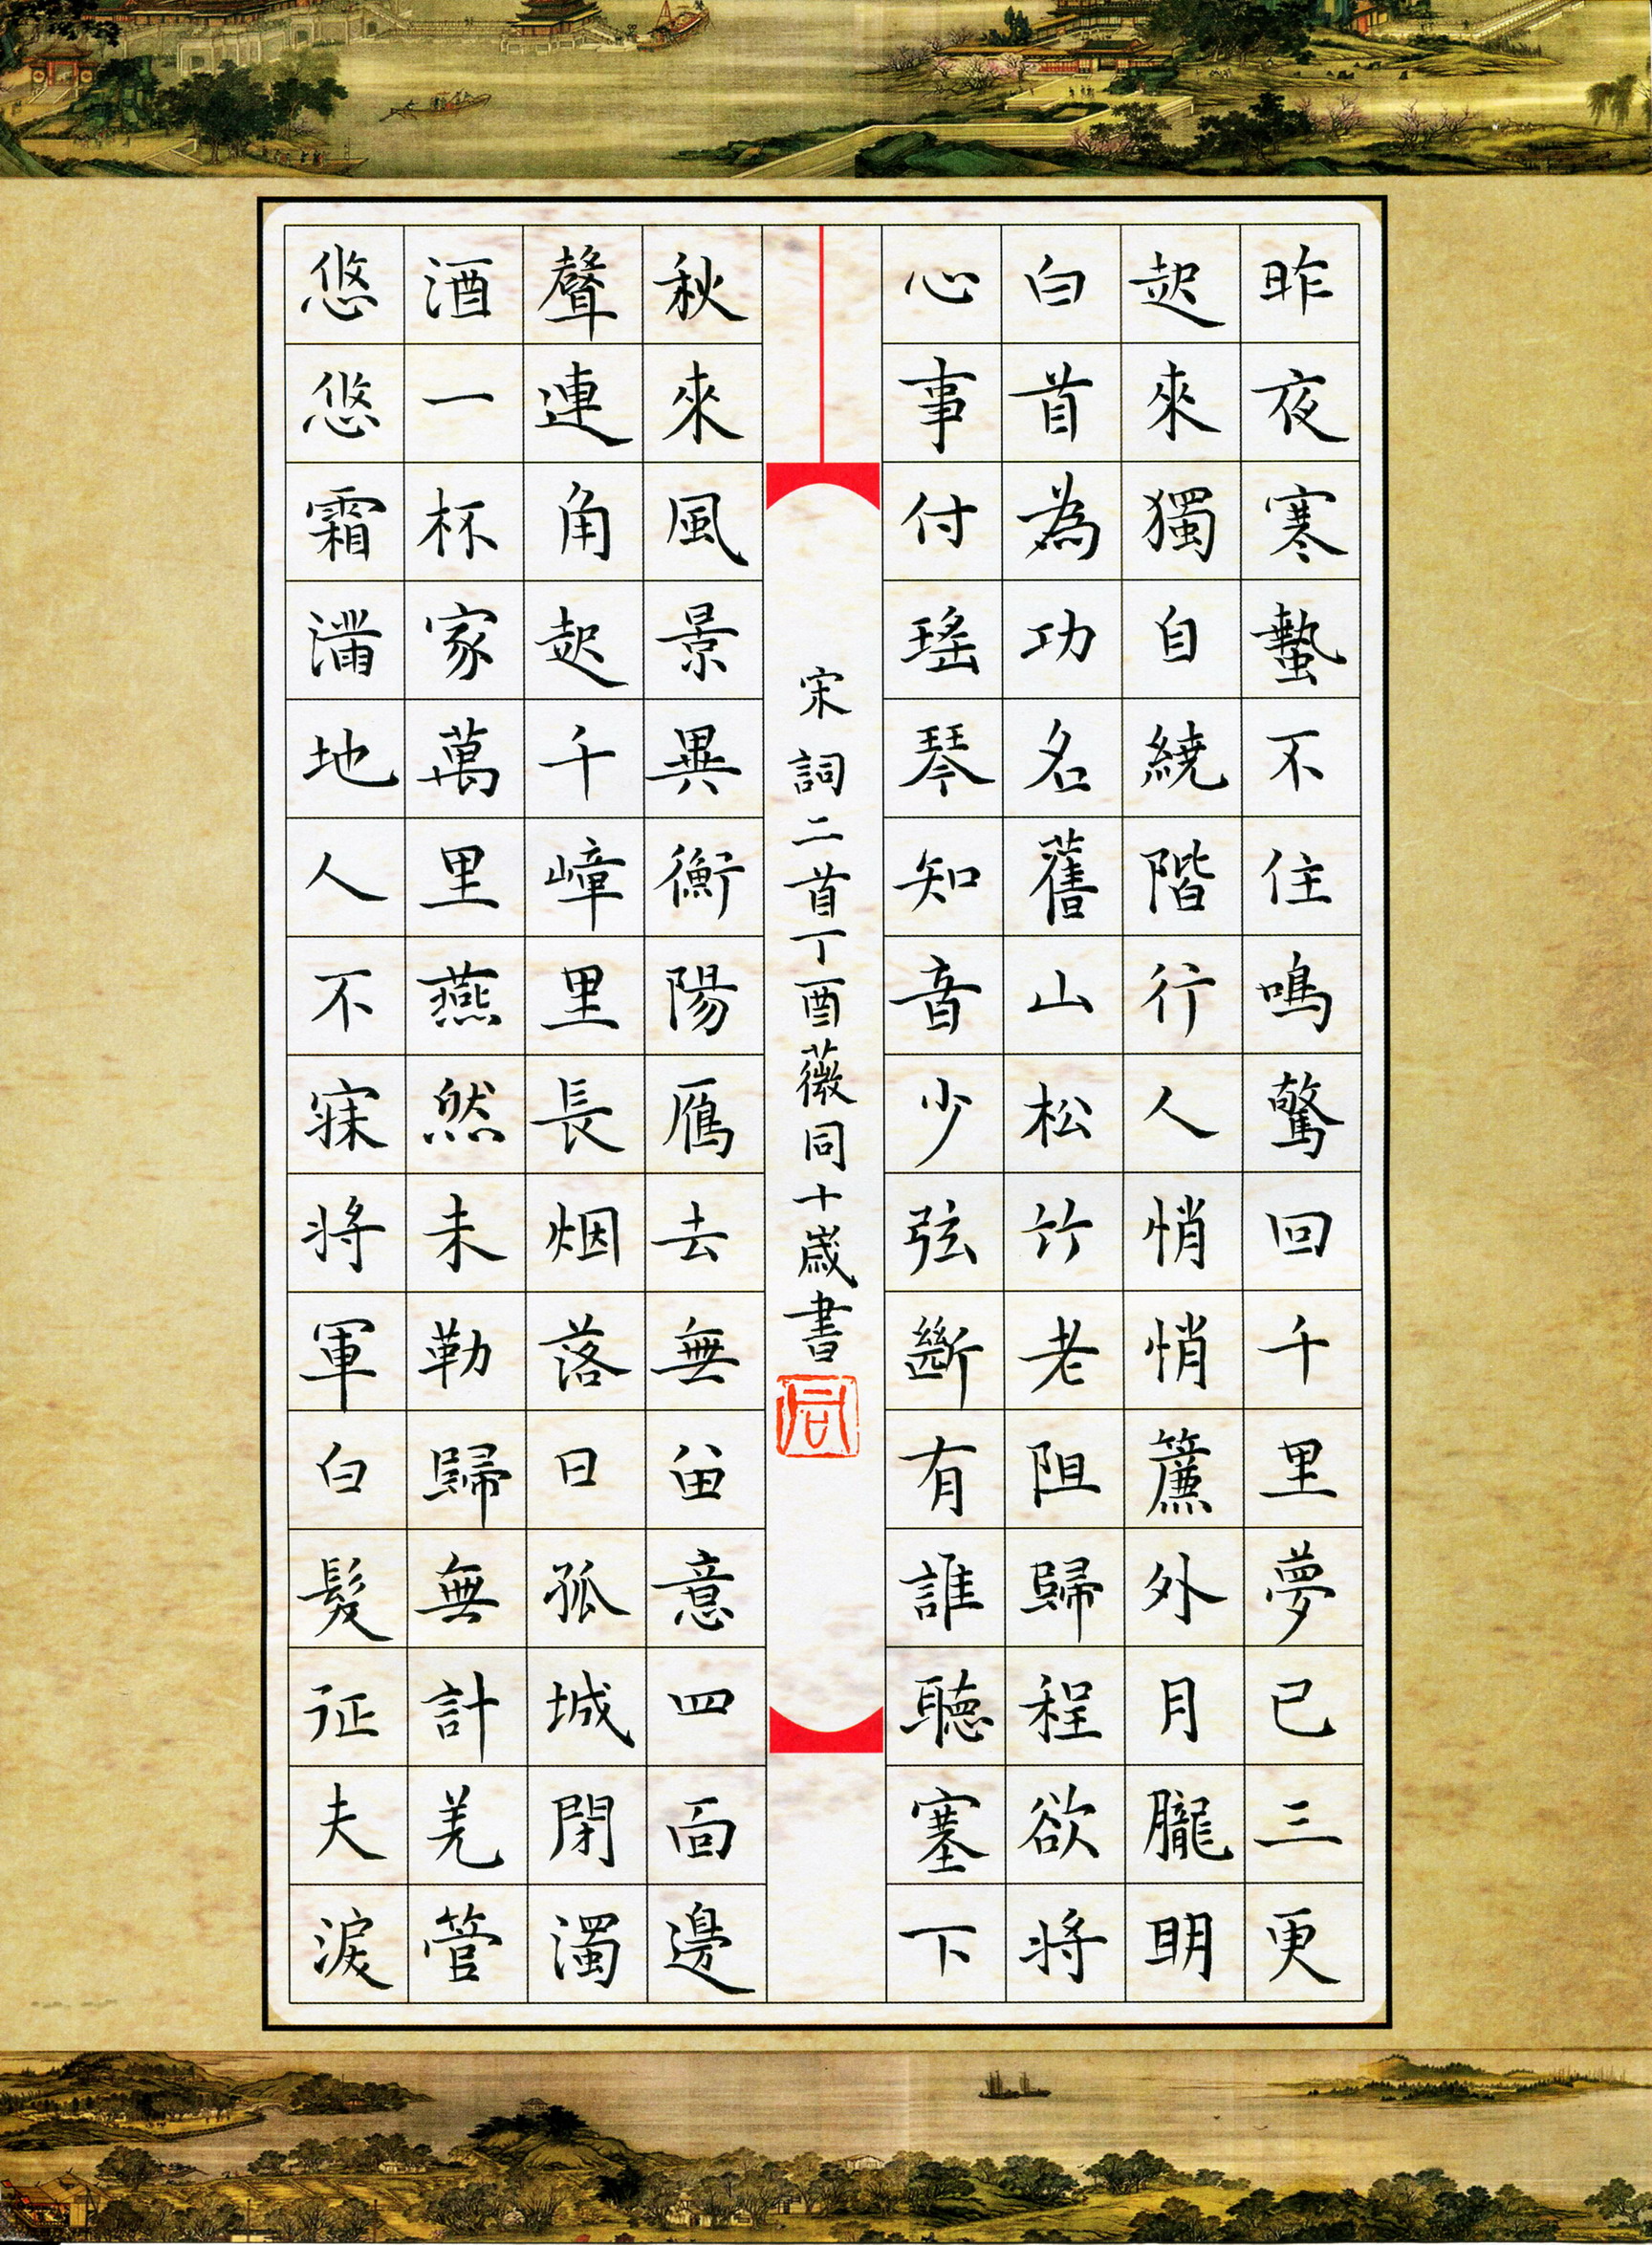 昨夜寒蟄不住鳴驚回千里夢已三更
起來獨自繞階行人悄悄簾外月朧明
白首為功名舊山松竹老阻歸程欲將
心事付瑤琴知音少弦斷有誰聽塞下
宋詞二首丁酉薇同十歲書
同
秋來風景異衡陽鴈去無留意四面邊
聲連角起千嶂里長烟落日孤城閉濁
酒一杯家萬里燕然未勒歸無計羌管
悠悠霜滿地人不寐將軍白髮征夫淚